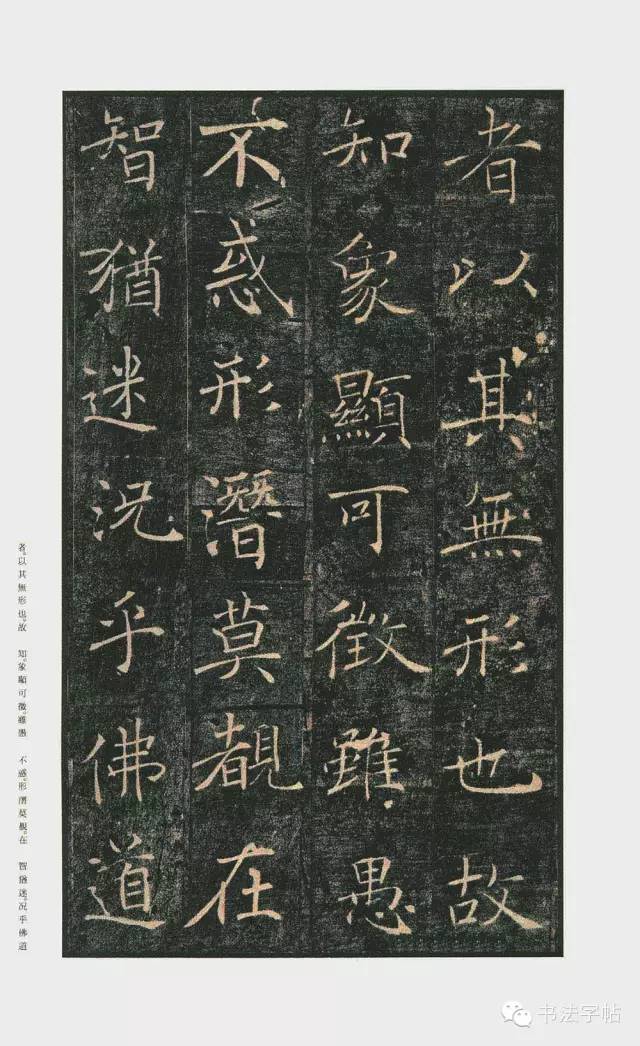 者以其無形也故
知象顯可徵雖愚
不惑形潛莫覩在
智猶迷況乎佛道
者。以其無形也。故　知。象顯可徵。雖愚　不惑。形潛莫覩。在　智猶迷。況乎佛道
书法字帖